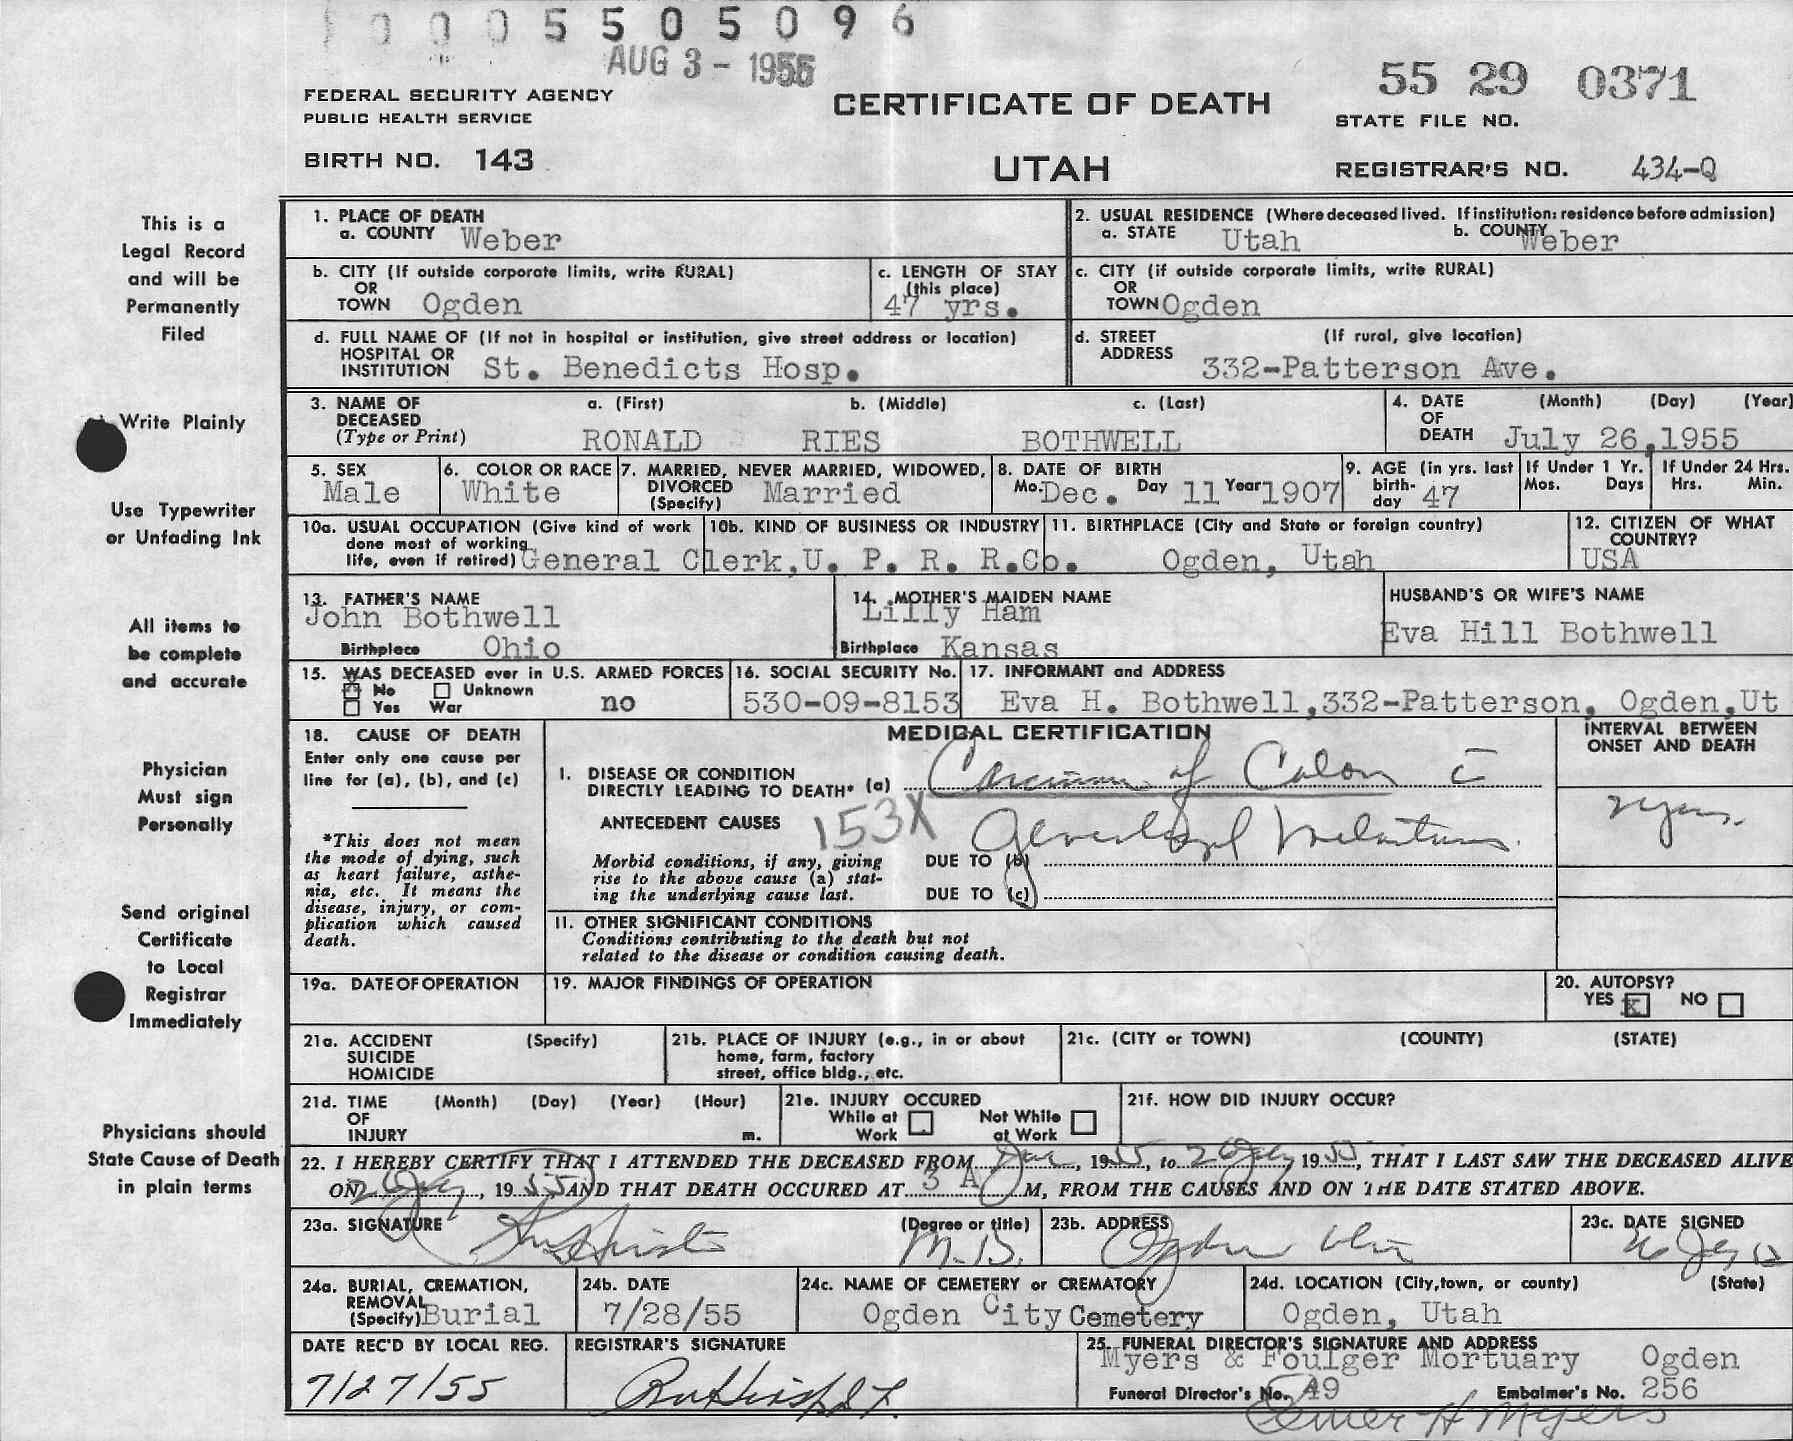 0 0 0 5 5 0 5 0 9 6
AUG 3 - 1955
55 29 0371
FEDERAL SECURITY AGENCY
PUBLIC HEALTH SERVICE
CERTIFICATE OF DEATH
STATE FILE NO.
BIRTH NO. 143
UTAH
REGISTRAR'S NO. 434-Q
This is a
Legal Record
and will be
Permanently
Filed
Write Plainly
Use Typewriter
or Unfading Ink
All items to
be complete
and accurate
Physician
Must sign
Personally
Send original
Certificate
to Local
Registrar
Immediately
Physicians should
State Cause of Death
in plain terms
1. PLACE OF DEATH
a. COUNTY Weber
2. USUAL RESIDENCE (Where deceased lived. If institution: residence before admission)
a. STATE Utah b. COUNTY Weber
b. CITY (If outside corporate limits, write RURAL)
OR
TOWN Ogden
c. LENGTH OF STAY
(this place)
47 yrs.
c. CITY (if outside corporate limits, write RURAL)
OR
TOWN Ogden
d. FULL NAME OF (If not in hospital or institution, give street address or location)
HOSPITAL OR
INSTITUTION St. Benedicts Hosp.
d. STREET (If rural, give location)
ADDRESS 332-Patterson Ave.
3. NAME OF a. (First) b. (Middle) c. (Last)
DECEASED
(Type or Print) RONALD RIES BOTHWELL
4. DATE (Month) (Day) (Year)
OF
DEATH July 26,1955
5. SEX
Male
6. COLOR OR RACE
White
7. MARRIED, NEVER MARRIED, WIDOWED,
DIVORCED Married
(Specify)
8. DATE OF BIRTH
Mo. Dec. Day 11 Year 1907
9. AGE (in yrs. last
birth-
day 47
If Under 1 Yr.
Mos. Days
If Under 24 Hrs.
Hrs. Min.
10a. USUAL OCCUPATION (Give kind of work
done most of working
life, even if retired) General Clerk,
10b. KIND OF BUSINESS OR INDUSTRY
U. P. R. R.Co.
11. BIRTHPLACE (City and State or foreign country)
Ogden, Utah
12. CITIZEN OF WHAT
COUNTRY?
USA
13. FATHER'S NAME
John Bothwell
Birthplace Ohio
14. MOTHER'S MAIDEN NAME
Lilly Ham
Birthplace Kansas
HUSBAND'S OR WIFE'S NAME
Eva Hill Bothwell
15. WAS DECEASED ever in U.S. ARMED FORCES
No Unknown
Yes War no
16. SOCIAL SECURITY No.
530-09-8153
17. INFORMANT and ADDRESS
Eva H. Bothwell,332-Patterson, Ogden,Ut
18. CAUSE OF DEATH
Enter only one cause per
line for (a), (b), and (c)
*This does not mean
the mode of dying, such
as heart failure, asthe-
nia, etc. It means the
disease, injury, or com-
plication which caused
death.
MEDICAL CERTIFICATION
I. DISEASE OR CONDITION
DIRECTLY LEADING TO DEATH* (a) Carcinoma of Colon c̄
ANTECEDENT CAUSES 153X Generalized Metastasis.
Morbid conditions, if any, giving
rise to the above cause (a) stat-
ing the underlying cause last.
DUE TO (b)
DUE TO (c)
INTERVAL BETWEEN
ONSET AND DEATH
2 yrs.
II. OTHER SIGNIFICANT CONDITIONS
Conditions contributing to the death but not
related to the disease or condition causing death.
19a. DATE OF OPERATION
19. MAJOR FINDINGS OF OPERATION
20. AUTOPSY?
YES X NO
21a. ACCIDENT (Specify)
SUICIDE
HOMICIDE
21b. PLACE OF INJURY (e.g., in or about
home, farm, factory
street, office bldg., etc.
21c. (CITY or TOWN) (COUNTY) (STATE)
21d. TIME (Month) (Day) (Year) (Hour)
OF
INJURY m.
21e. INJURY OCCURED
While at Not While
Work at Work
21f. HOW DID INJURY OCCUR?
22. I HEREBY CERTIFY THAT I ATTENDED THE DECEASED FROM , 1955, to 26 July 1955, THAT I LAST SAW THE DECEASED ALIVE
ON 26 July, 1955 AND THAT DEATH OCCURED AT 3 A M, FROM THE CAUSES AND ON THE DATE STATED ABOVE.
23a. SIGNATURE (Degree or title)
M.D.
23b. ADDRESS
Ogden Utah
23c. DATE SIGNED
26 July 55
24a. BURIAL, CREMATION,
REMOVAL
(Specify) Burial
24b. DATE
7/28/55
24c. NAME OF CEMETERY or CREMATORY
Ogden City Cemetery
24d. LOCATION (City, town, or county) (State)
Ogden, Utah
DATE REC'D BY LOCAL REG.
7/27/55
REGISTRAR'S SIGNATURE
25. FUNERAL DIRECTOR'S SIGNATURE AND ADDRESS
Myers & Foulger Mortuary Ogden
Funeral Director's No. 49 Embalmer's No. 256
Elmer H Myers